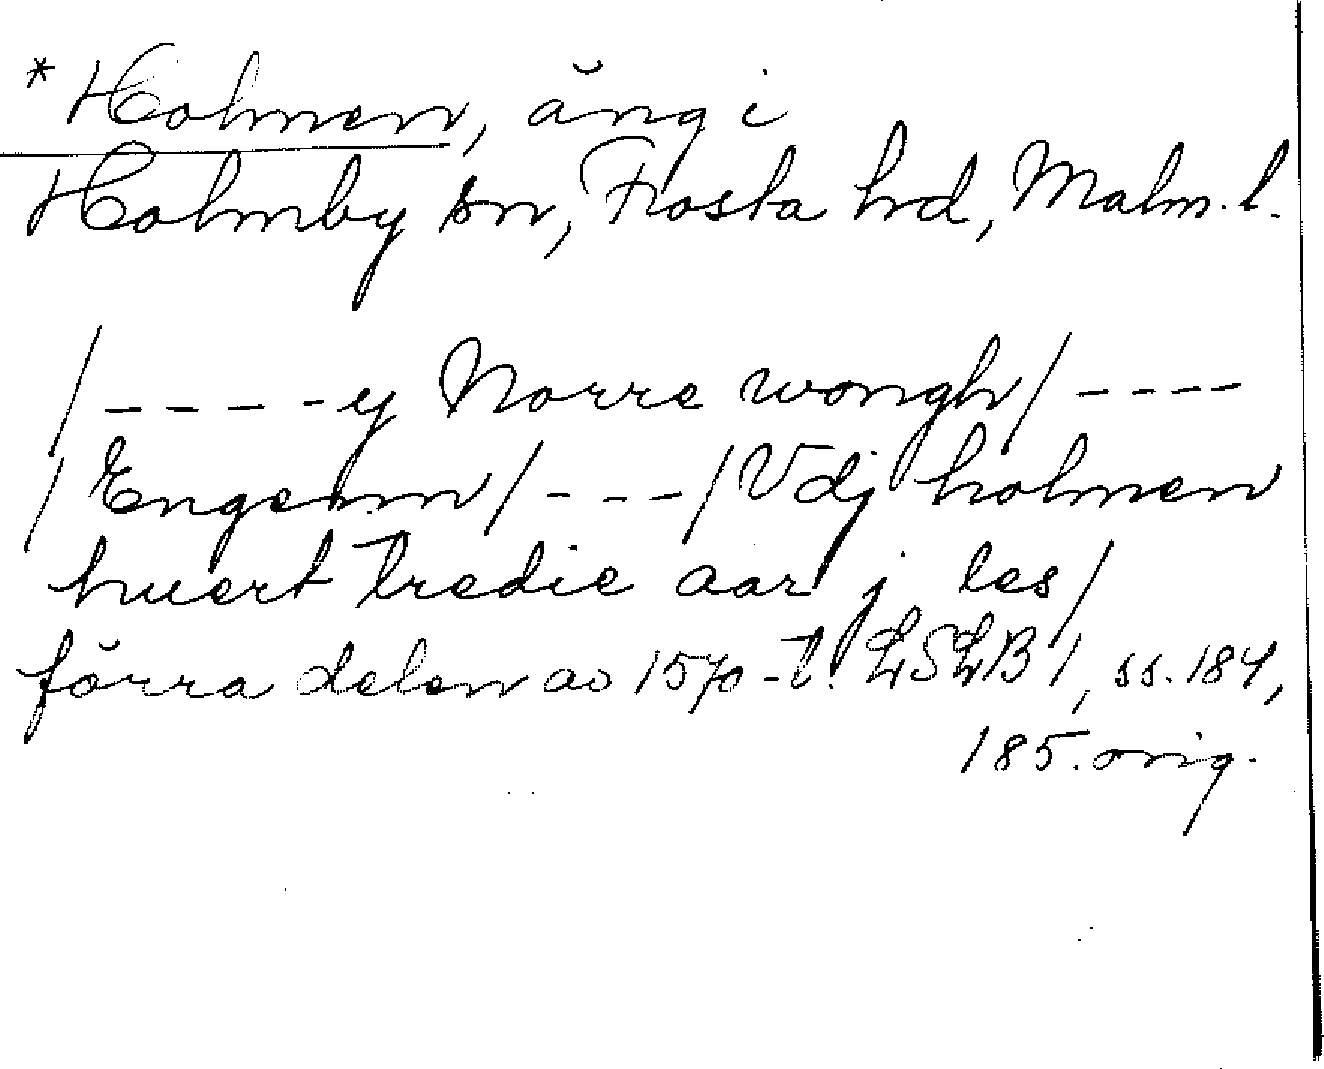 * Holmen, äng i
Holmby sn, Frosta hd, Malm. l.
/ - - - - - y Norre wongh / - - - -
/ Engenn / - - - / Vdj holmen
huert tredie aar j les /
förra delen av 1570-t. LSLB 1, ss. 184,
185. orig.